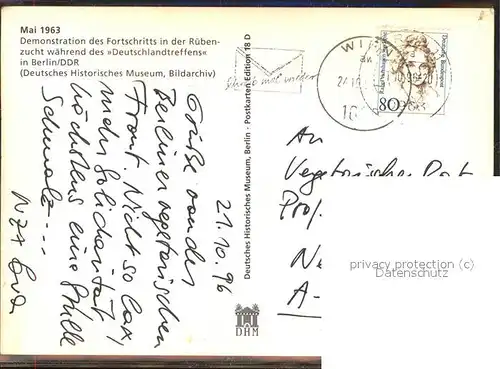 Mai 1963
Demonstration des Fortschritts in der Rüben-
zucht während des »Deutschlandtreffens«
in Berlin/DDR
(Deutsches Historisches Museum, Bildarchiv)
21.10.96
Grüße von der
Berliner vegetarischen
Front. Nicht so lax,
mehr Solidarität
höchstens eine Stulle
Schmalz....
Deutsches Historisches Museum, Berlin · Postkarten Edition 18 D
DHM
Schreib mal wieder
WIEN
80
An
Vegetarische
Prof.
A-
privacy protection (c)
Datenschutz